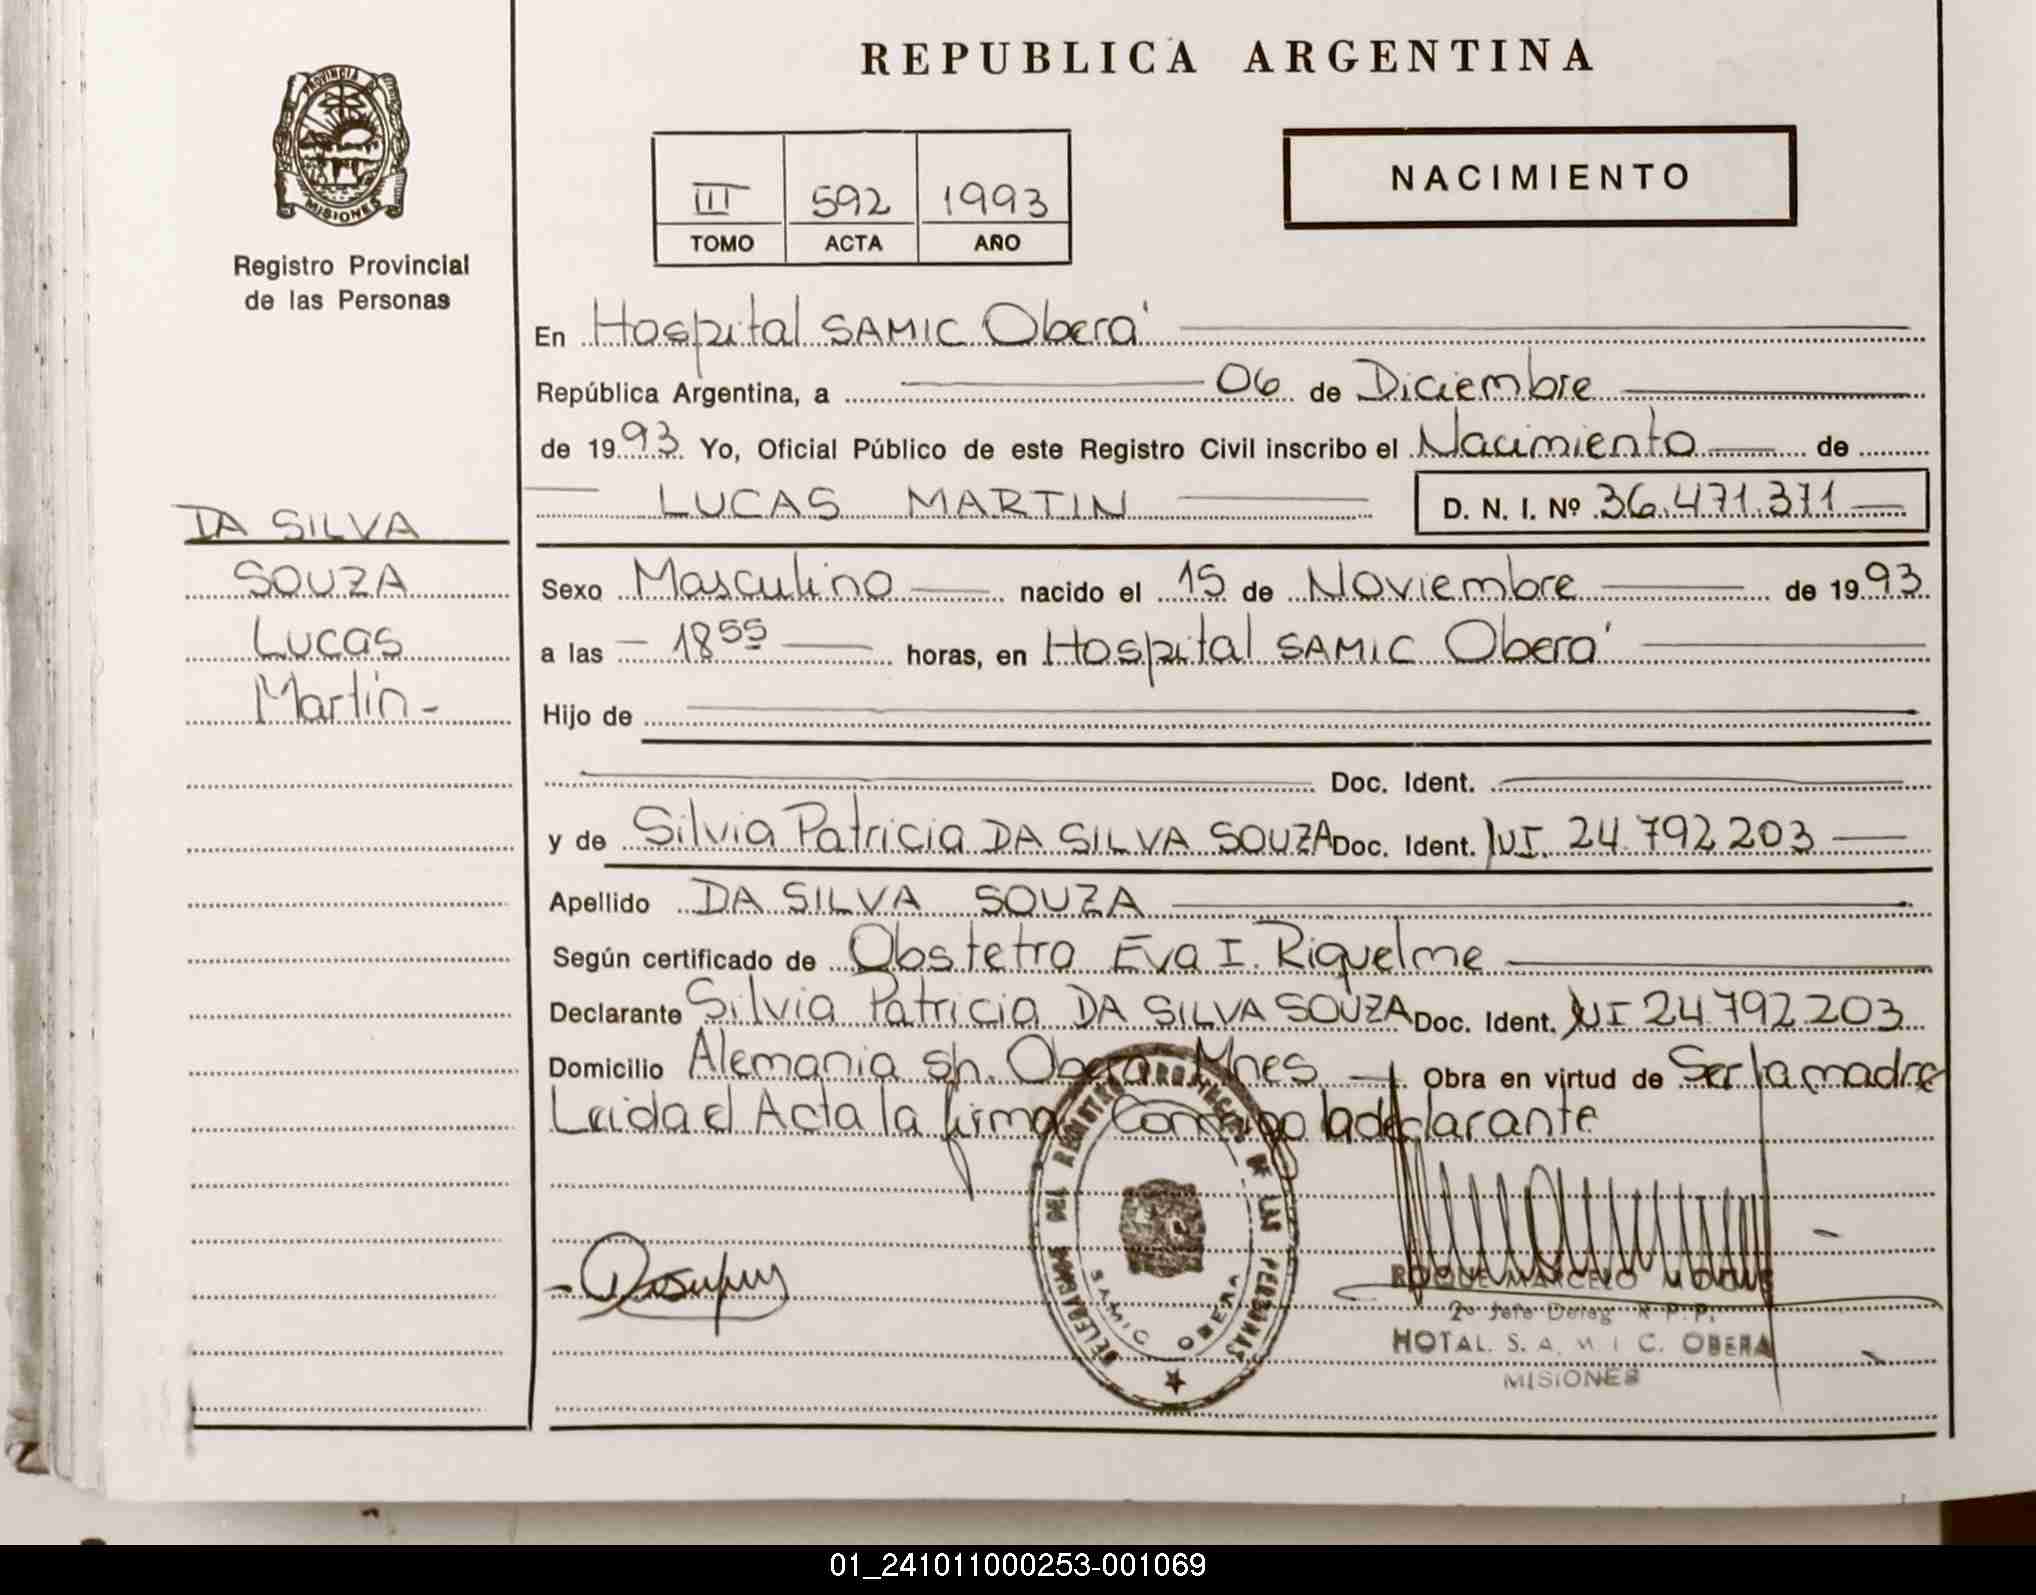 REPUBLICA ARGENTINA
PROVINCIA DE
MISIONES
Registro Provincial
de las Personas
III 592 1993
TOMO ACTA AÑO
NACIMIENTO
En Hospital SAMIC Oberá
República Argentina, a 06 de Diciembre
de 1993 Yo, Oficial Público de este Registro Civil inscribo el Nacimiento de
LUCAS MARTIN D. N. I. Nº 36.471.371
DA SILVA
SOUZA
Lucas
Martín-
Sexo Masculino nacido el 15 de Noviembre de 1993
a las 18 55 horas, en Hospital SAMIC Oberá
Hijo de
Doc. Ident.
y de Silvia Patricia DA SILVA SOUZA Doc. Ident. NI. 24.792.203
Apellido DA SILVA SOUZA
Según certificado de Obstetra Eva I. Riquelme
Declarante Silvia Patricia DA SILVA SOUZA Doc. Ident. NI 24792203
Domicilio Alemania s/n. Oberá Mnes Obra en virtud de Ser la madre
Leida el Acta la firma Conmigo la declarante
DELEGACION DEL REGISTRO PROVINCIAL DE LAS PERSONAS
SAMIC OBERA
ROQUE MARCELO
2º Jefe Deleg R.P.P.
HOTAL. S. A. M I C. OBERA
MISIONES
01_241011000253-001069